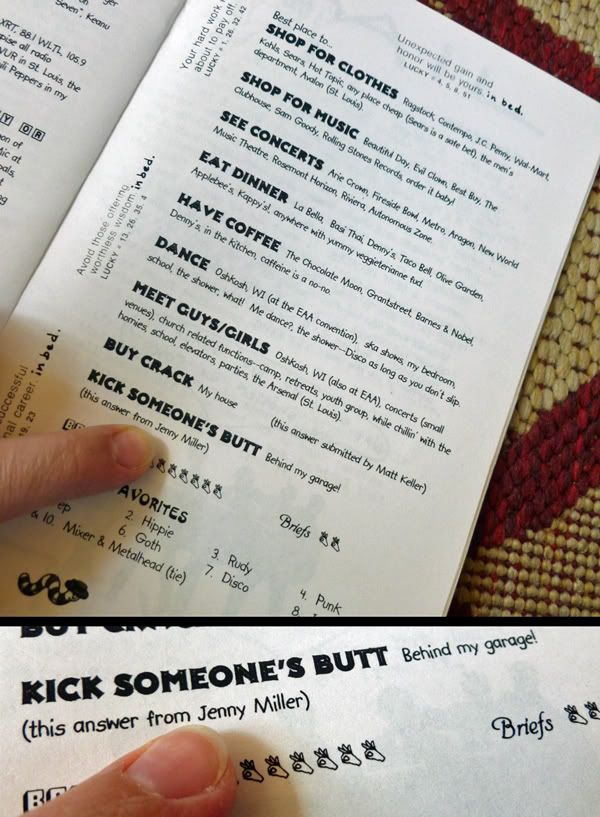 Seven", Keanu
XRT, 88.1 WLTL, 105.9
pise all radio
VUR in St. Louis, the
ili Peppers in my
Y OR
on of
ic at
oals,
t
ng
Your hard work
about to pay off.
LUCKY # 1, 26, 32, 42
Unexpected gain and
honor will be yours in bed.
LUCKY # 4, 5, 8, 51
Best place to...
SHOP FOR CLOTHES Ragstock, Contempo, J.C. Penny, Wal-Mart,
Kohls, Sears, Hot Topic, any place cheap (Sears is a safe bet), the men's
department, Avalon (St. Louis)
SHOP FOR MUSIC Beautiful Day, Evil Clown, Best Buy, The
Clubhouse, Sam Goody, Rolling Stones Records, order it baby!
SEE CONCERTS Arie Crown, Fireside Bowl, Metro, Aragon, New World
Music Theatre, Rosemont Horizon, Riviera, Autonomous Zone.
EAT DINNER La Bella, Basi Thai, Denny's, Taco Bell, Olive Garden,
Applebee's, Kappy's!, anywhere with yummy veggieterianne fud.
HAVE COFFEE The Chocolate Moon, Grantstreet, Barnes & Nobel,
Denny's, in the Kitchen, caffeine is a no-no.
DANCE Oshkosh, WI (at the EAA convention), ska shows, my bedroom,
school, the shower, what! Me dance?, the shower--Disco as long as you don't slip.
MEET GUYS/GIRLS Oshkosh, WI (also at EAA), concerts (small
venues), church related functions--camp, retreats, youth group, while chillin' with the
homies, school, elevators, parties, the Arsenal (St. Louis).
BUY CRACK My house (this answer submitted by Matt Keller)
KICK SOMEONE'S BUTT Behind my garage!
(this answer from Jenny Miller)
Avoid those offering
worthless wisdom in bed.
LUCKY # 13, 26, 35, 4
uccessful
nal career. in bed.
19, 23
Briefs
AVORITES
ep
2. Hippie
3. Rudy
4. Punk
6. Goth
7. Disco
8.
& 10. Mixer & Metalhead (tie)
BUY CRACK
KICK SOMEONE'S BUTT Behind my garage!
(this answer from Jenny Miller)
Briefs